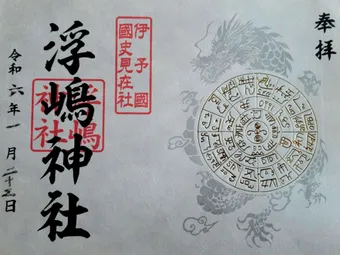 奉拝
伊予國
國史見在社
浮嶋神社
浮嶋
神社
令和六年一月二十三日